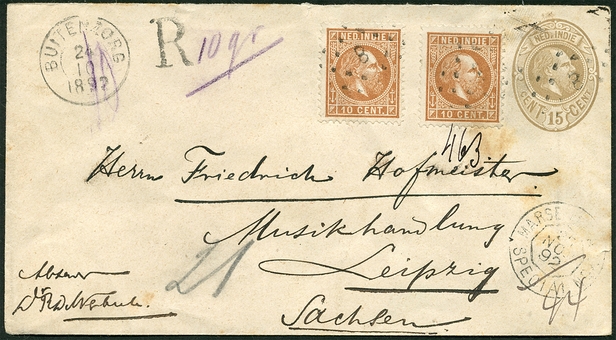 BUITENZORG
24
10
1892
R
10 gr
NED. INDIE
10 CENT.
NED. INDIE
10 CENT.
NED. INDIE
CENT 15 CENT
463
Herrn Friedrich Hofmeister.
Musikhandlung
Leipzig
Sachsen.
MARSE
NO
92
21
44